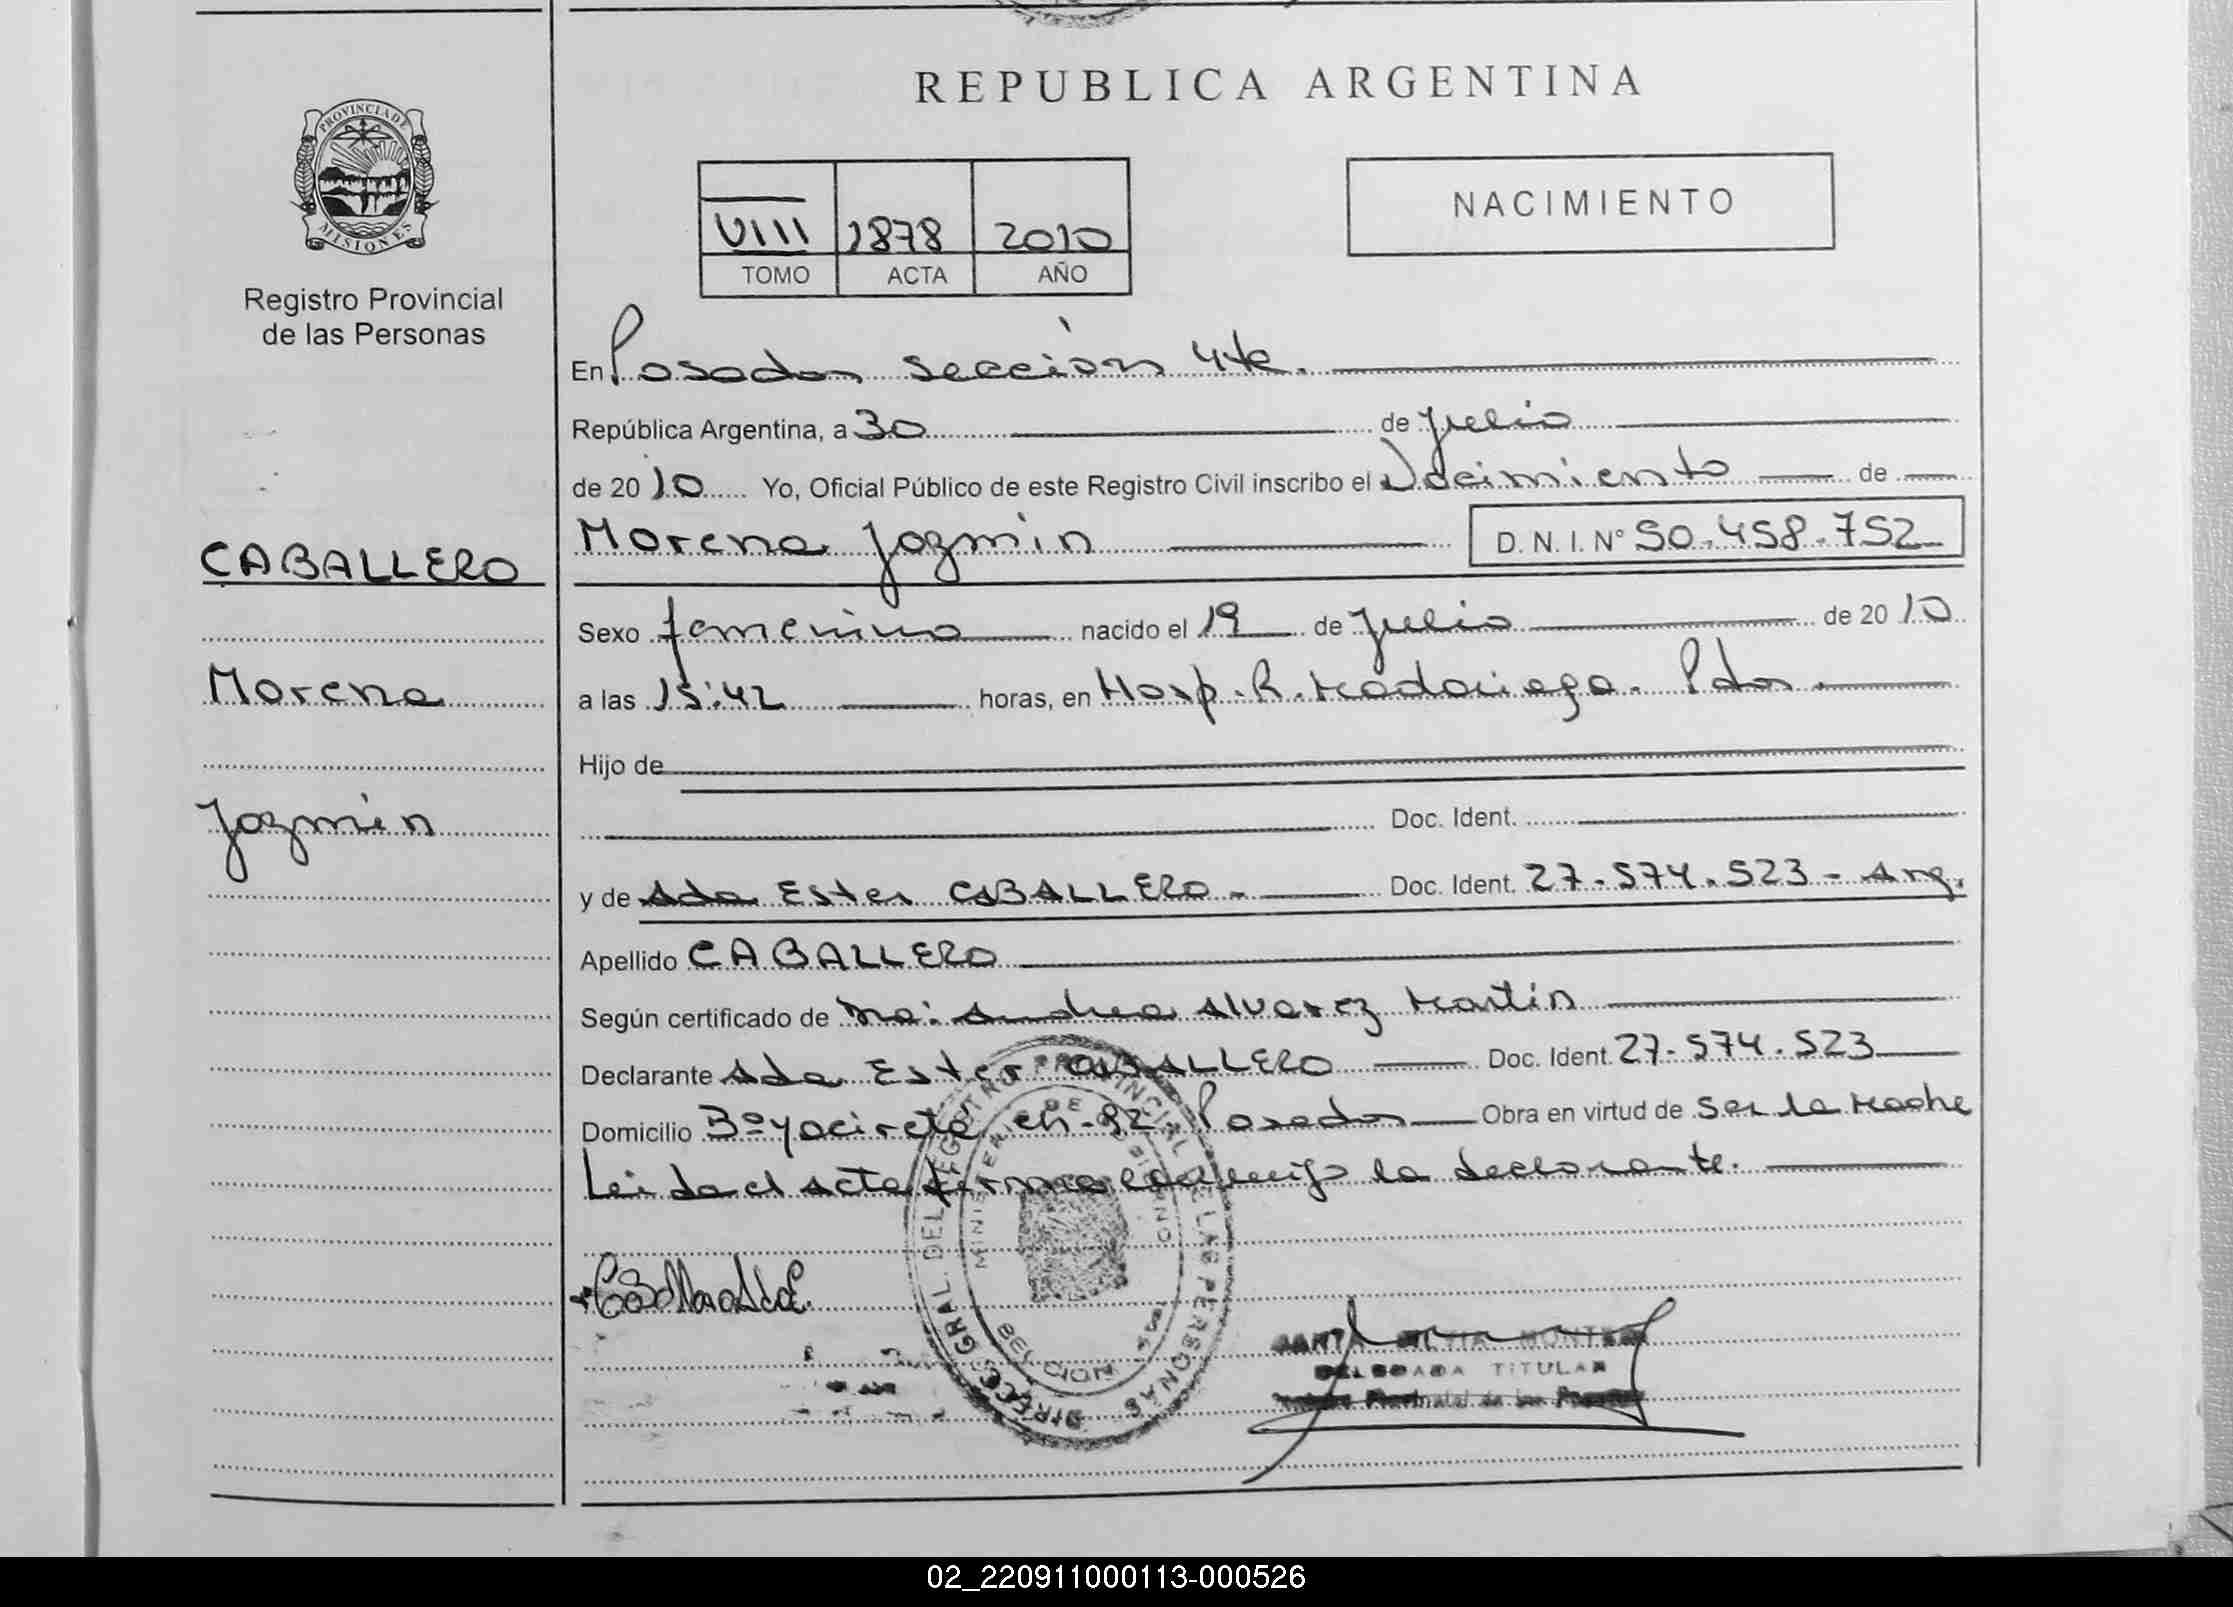 REPUBLICA ARGENTINA
PROVINCIA DE
MISIONES
Registro Provincial
de las Personas
VIII 1878 2010
TOMO ACTA AÑO
NACIMIENTO
En Posadas sección 4ta.
República Argentina, a 30 de Julio
de 2010 Yo, Oficial Público de este Registro Civil inscribo el Nacimiento de
CABALLERO
Morena Jazmin D. N. I. N° 50.458.752
Sexo femenino nacido el 19 de Julio de 2010
Morena
a las 15:42 horas, en Hosp. R. Madariaga. Pdas.
Hijo de
Jazmin
Doc. Ident.
y de Ada Ester CABALLERO - Doc. Ident. 27.574.523 - Arg.
Apellido CABALLERO
Según certificado de Ma: Andrea Alvarez Martin
Declarante Ada Ester CABALLERO Doc. Ident. 27.574.523
Domicilio Bº Yacireté ch. 92. Posadas Obra en virtud de Ser la Madre
Leida el Acta firma conmigo la declarante.
DIRECC. GRAL. DEL REGISTRO PROVINCIAL LAS PERSONAS
MINISTER DE
TITULAR
02_220911000113-000526